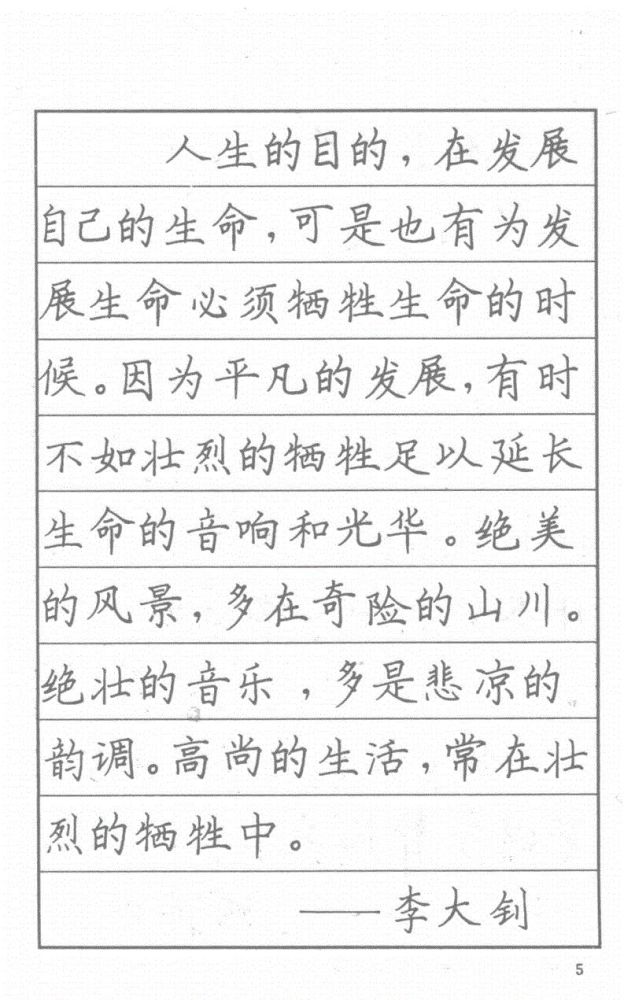 人生的目的，在发展
自己的生命，可是也有为发
展生命必须牺牲生命的时
候。因为平凡的发展，有时
不如壮烈的牺牲足以延长
生命的音响和光华。绝美
的风景，多在奇险的山川。
绝壮的音乐，多是悲凉的
韵调。高尚的生活，常在壮
烈的牺牲中。
——李大钊
5